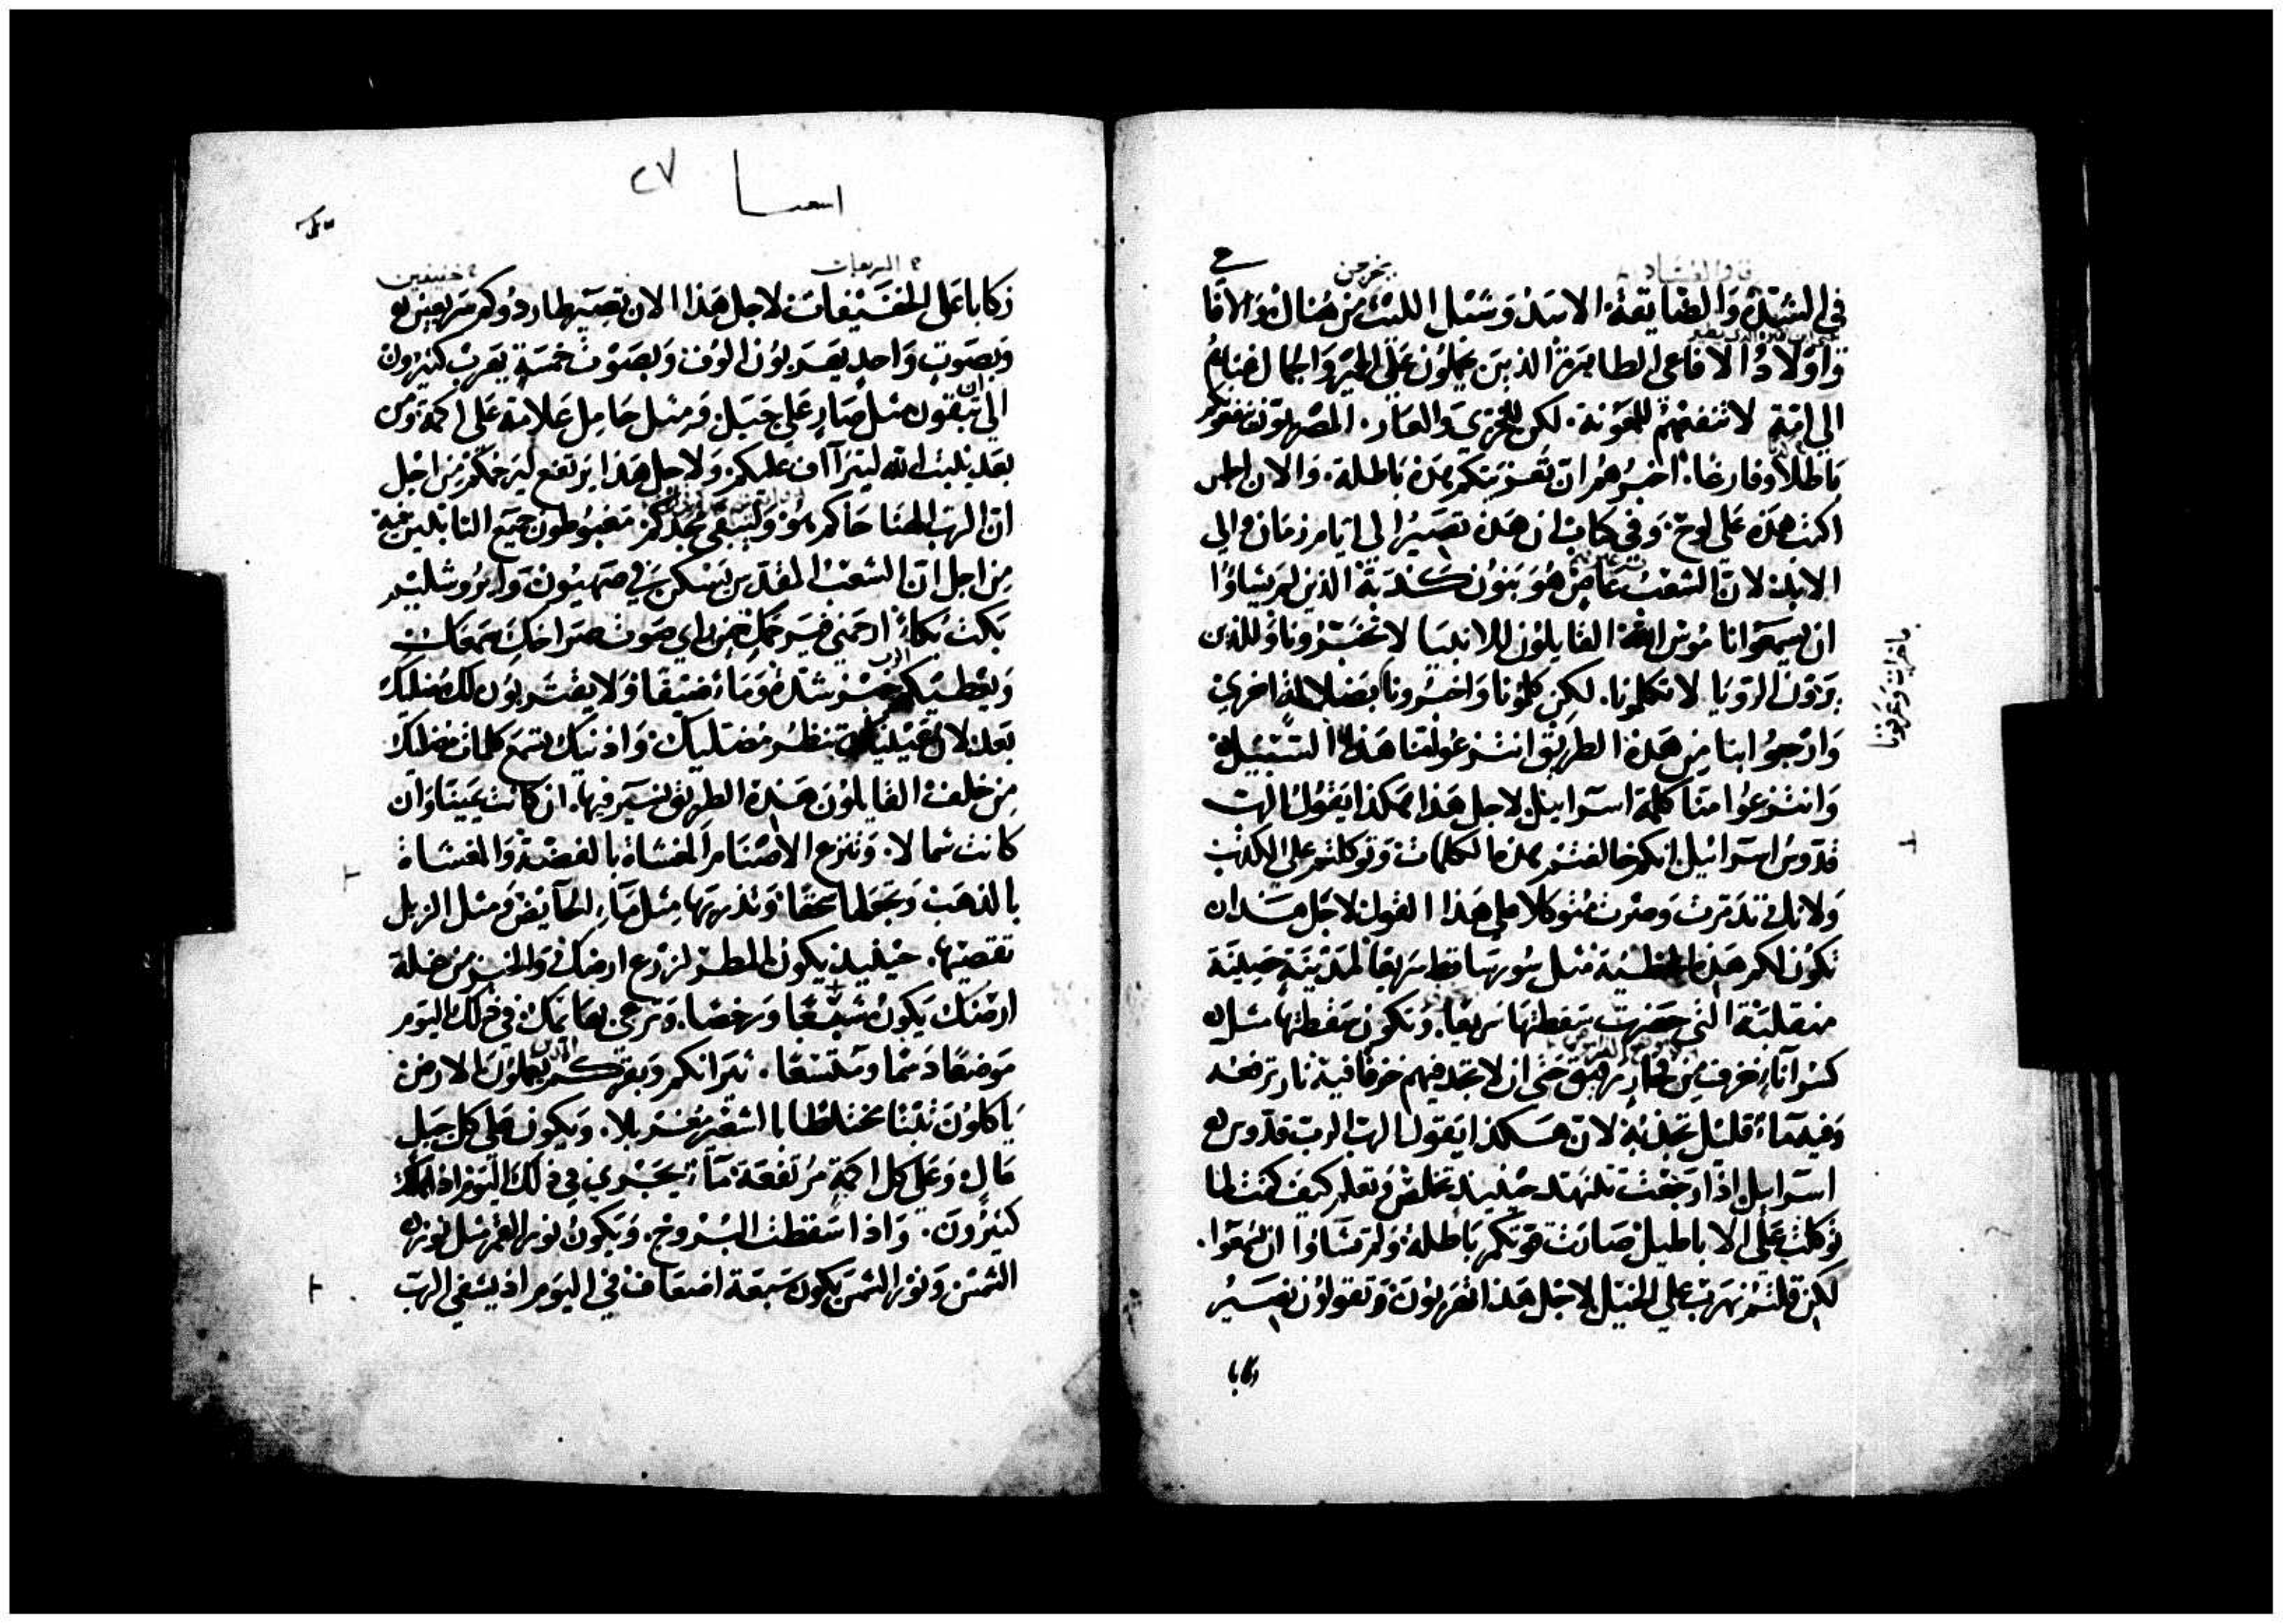 في الشدة والضايقة الاسد وشبل الليث من هناك والافا
واولاد الافاعي الطايرة الذين يحملون على الحمير والجمال غنايم
الي امة لا تنفعهم للمعونة. لكن للخزي والعار. المصريون
باطلا وفارغا. اخبرهم ان تعزيتكم هذه باطلة. والان اجلس
اكتب هذه على لوح. وفي كتاب ان هذه تصير الي ايام زمان والي
الابد لان الشعب عاصٍ هو بنون كذبة الذين لم يشاوا
ان يسمعوا ناموس الله القايلون للانبيا لا تخبرونا وللذين
يرون الرويا لا تكلمونا. لكن كلمونا واخبرونا بضلالة اخري
وارجعوا بنا من هذه الطريق انتزعوا عنا هذا السبيل
وانتزعوا منا كلمة اسرائيل لاجل هذا هكذا يقول الرب
قدوس اسرائيل انكم خالفتم هذه الكلمات وتوكلتم على الكذب
ولانك تذمرت وصرت متوكلا على هذا القول لاجل هذا
تكون لكم هذه الخطية مثل سور ساقط سريعا لمدينة حصينة
منقلبة التي حضرت سقطتها سريعا. وتكون سقطتها مثل
كسر آناء خزف من فخار رقيق حتى ان لا تجد فيهم خزفا فيه نار ترفعه
وفيه ماء قليل تجذبه لان هكذا يقول الرب الرب قدوس
اسرايل اذا رجعت تتنهد حينيذ تخلص وتعلم كيف كنت لما
توكلت على الاباطيل صارت قوتكم باطلة ولم تشاوا ان تسمعوا.
لكن قلتم نهرب على الخيل لاجل هذا تهربون وتقولون نصير
ركابا
اشعيا ٢٧
ركابا على الخفيفات لاجل هذا الان تصير طاردوكم سريعين
وبصوت واحد يهربون الوف وبصوت خمسة يهرب كثيرون
الي ان تبقون مثل صارٍ على جبل ومثل حامل علامة على اكمة ومن
بعد يلبث الله ليتراآف عليكم ولاجل هذا يرتفع ليرحمكم من اجل
ان الرب الهنا حاكم هو وليبقى مجدكم مغبوطون جميع الثابتين فيه
من اجل ان الشعب المقدس يسكن في صهيون وايروشليم
بكت بكاءً ارحمني فيرحمك حين راي صوت صراخك سمعك
ويعطيكم الرب خبز شدة وماء ضيقا ولا يقتربون لك مضليك
بعد لان عينيك تنظر مضليك. واذنيك تسمع كلمات مضليك
من خلف القايلون هذه الطريق نسير فيها. ان كانت يمينا وان
كانت شمالا. وتنزع الاصنام المغشاة بالفضة والمغشاة
بالذهب وتجعلها سحقا وتذريها مثل مآء الحايض ومثل الزبل
تقصيها. حينيذ يكون المطر لزرع ارضك والخبز من غلة
ارضك يكون شبعا ورخصا. وترعى بهايمك في ذلك اليوم
موضعا دسما ومتسعا. ثيرانكم وبقركم يعملون الارض
ياكلون تبنا مختلطا بالشعير مغربلا. ويكون على كل جبل
عالٍ وعلى كل اكمة مرتفعة مآء يجري في ذلك اليوم اذا هلك
كثيرون. واذا سقطت البروج. ويكون نور القمر مثل نور
الشمس ونور الشمس يكون سبعة اضعاف في اليوم اذ يشفي الرب